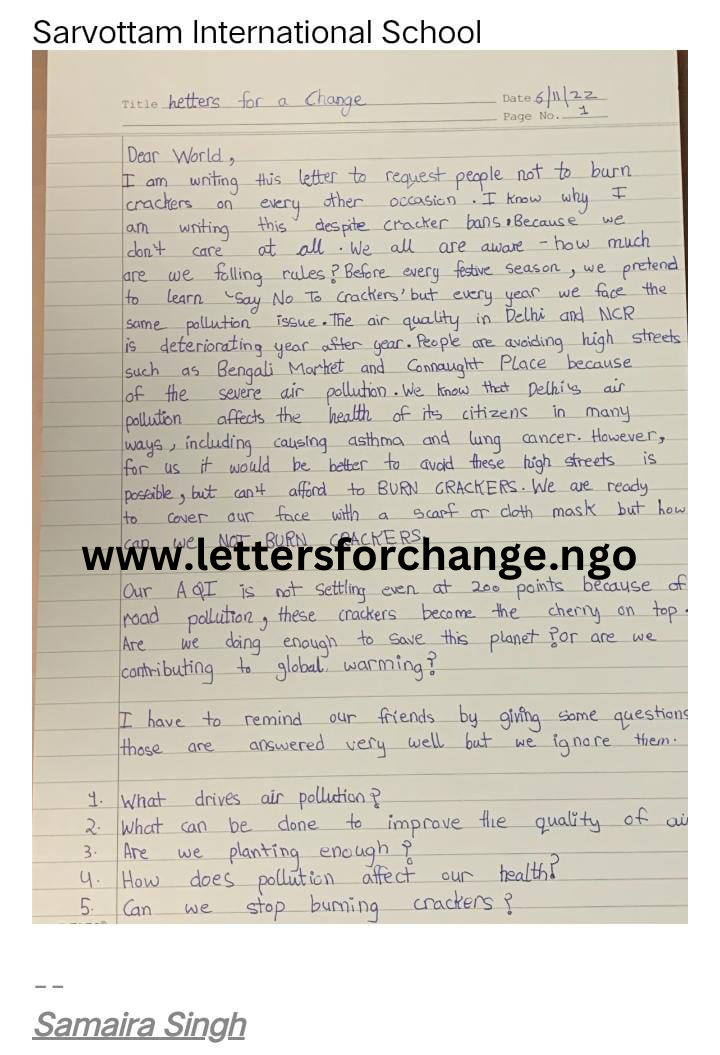 Sarvottam International School
Title Letters for a Change
Date 6/11/22
Page No. 1
Dear World,
I am writing this letter to request people not to burn
crackers on every other occasion. I know why I
am writing this despite cracker bans. Because we
don't care at all. We all are aware - how much
are we folling rules? Before every festive season, we pretend
to learn 'Say No To Crackers' but every year we face the
same pollution issue. The air quality in Delhi and NCR
is deteriorating year after year. People are avoiding high streets
such as Bengali Market and Connaught Place because
of the severe air pollution. We know that Delhi's air
pollution affects the health of its citizens in many
ways, including causing asthma and lung cancer. However,
for us it would be better to avoid these high streets is
possible, but can't afford to BURN CRACKERS. We are ready
to cover our face with a scarf or cloth mask but how
can we NOT BURN CRACKERS.
www.lettersforchange.ngo
Our AQI is not settling even at 200 points because of
road pollution, these crackers become the cherry on top.
Are we doing enough to save this planet? or are we
contributing to global warming?
I have to remind our friends by giving some questions
those are answered very well but we ignore them.
1. What drives air pollution?
2. What can be done to improve the quality of air
3. Are we planting enough?
4. How does pollution affect our health?
5. Can we stop burning crackers?
--
Samaira Singh